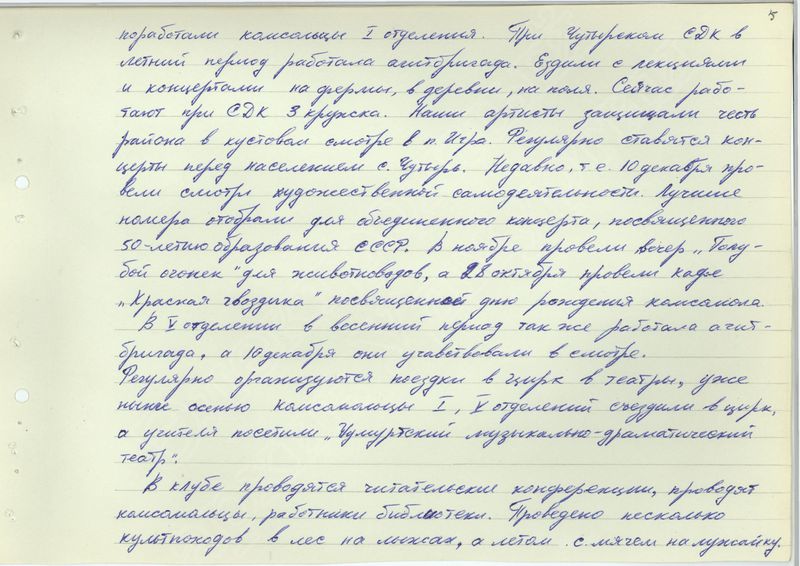 5
поработали комсомольцы I отделения. При Чутырском СДК в
летний период работала агитбригада. Ездили с лекциями
и концертами на фермы, в деревни, на поля. Сейчас рабо-
тают при СДК 3 кружка. Наши артисты защищали честь
района в кустовом смотре в п. Игра. Регулярно ставятся кон-
церты перед населением с. Чутырь. Недавно, т.е. 10 декабря про-
вели смотр художественной самодеятельности. Лучшие
номера отобрали для объединенного концерта, посвященного
50-летию образования СССР. В ноябре провели вечер „Голу-
бой огонек" для животноводов, а 28 октября провели кафе
„Красная гвоздика" посвященной дню рождения комсомола.
В V отделении в весенний период так же работала агит-
бригада, а 10 декабря они учавствовали в смотре.
Регулярно организуются поездки в цирк в театры, уже
ныне осенью комсомольцы I, V отделений съездили в цирк,
а учителя посетили „Удмуртский музыкально-драматический
театр".
В клубе проводятся читательские конференции, проводят
комсомольцы, работники библиотеки. Проведено несколько
культпоходов в лес на лыжах, а летом с мячем на лужайку.